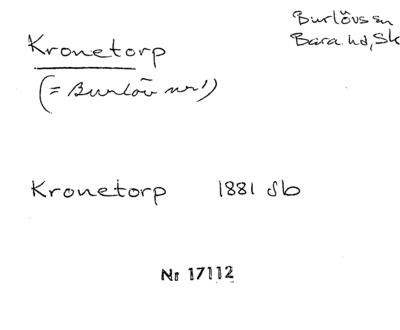 Burlövs sn
Bara hd, Sk
Kronetorp
(= Burlöv nr 1)
Kronetorp 1881 Jb
Nr 17112